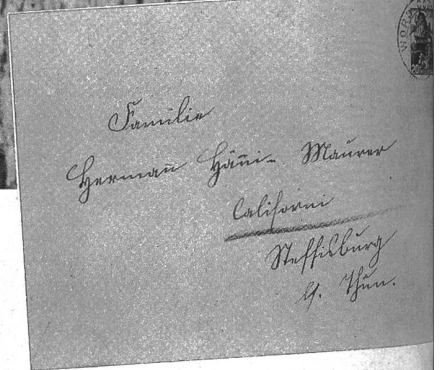 Familie
Herman̄ Hän̄i- Maurer
Californi
Steffisburg
b/. Thun.
WORB